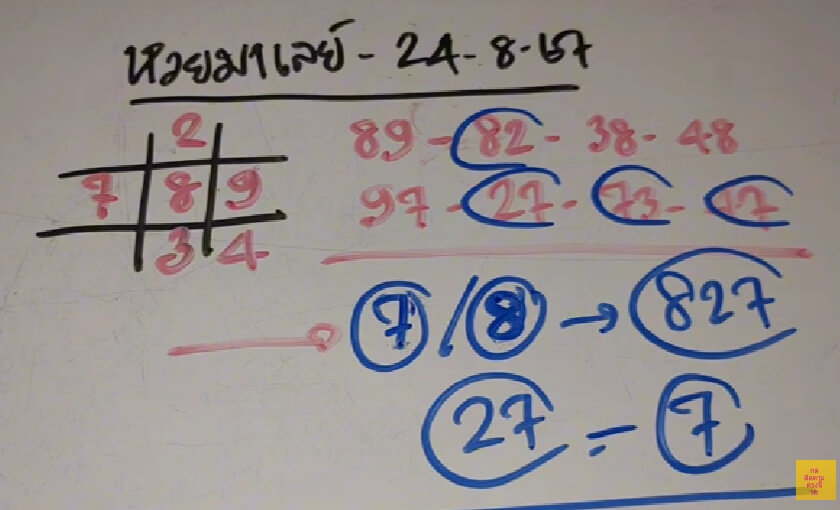 หวยมาเลย์ - 24 - 8 - 67
2
7 8 9
3 4
89 - 82 - 38 - 48
97 - 27 - 73 - 47
7 / 8 → 827
27 = 7
กด
ติดตาม